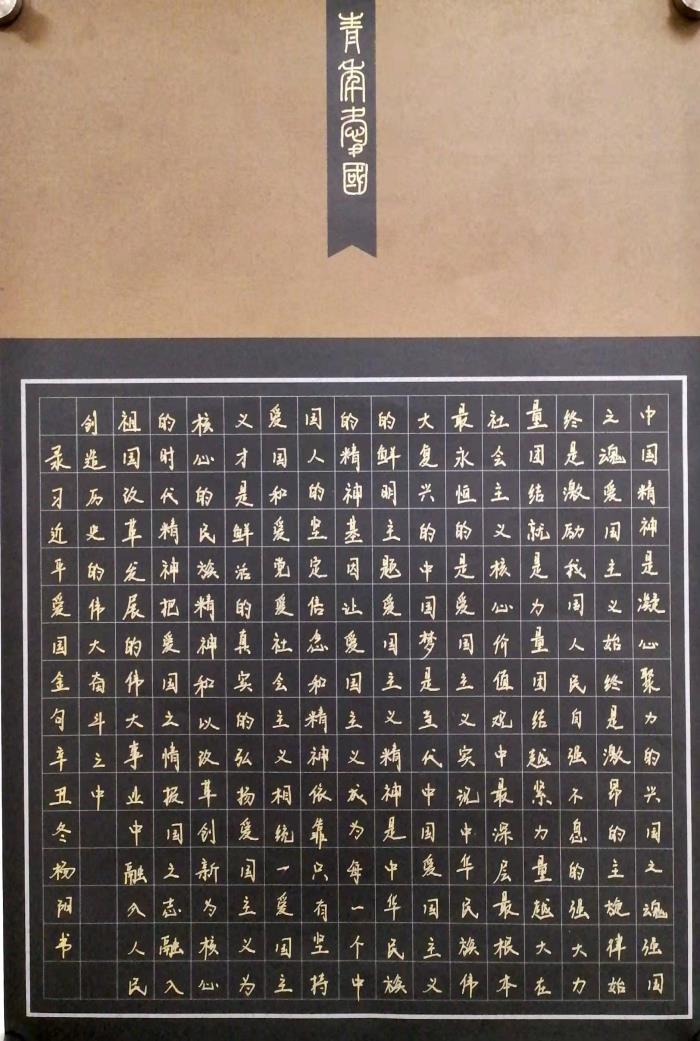 青年爱國
中国精神是凝心聚力的兴国之魂强国
之魂爱国主义始终是激昂的主旋律始
终是激励我国人民自强不息的强大力
量团结就是力量团结越紧力量越大在
社会主义核心价值观中最深层最根本
最永恒的是爱国主义实现中华民族伟
大复兴的中国梦是当代中国爱国主义
的鲜明主题爱国主义精神是中华民族
的精神基因让爱国主义成为每一个中
国人的坚定信念和精神依靠只有坚持
爱国和爱党爱社会主义相统一爱国主
义才是鲜活的真实的弘扬爱国主义为
核心的民族精神和以改革创新为核心
的时代精神把爱国之情报国之志融入
祖国改革发展的伟大事业中融入人民
创造历史的伟大奋斗之中
录习近平爱国金句辛丑冬杨阳书